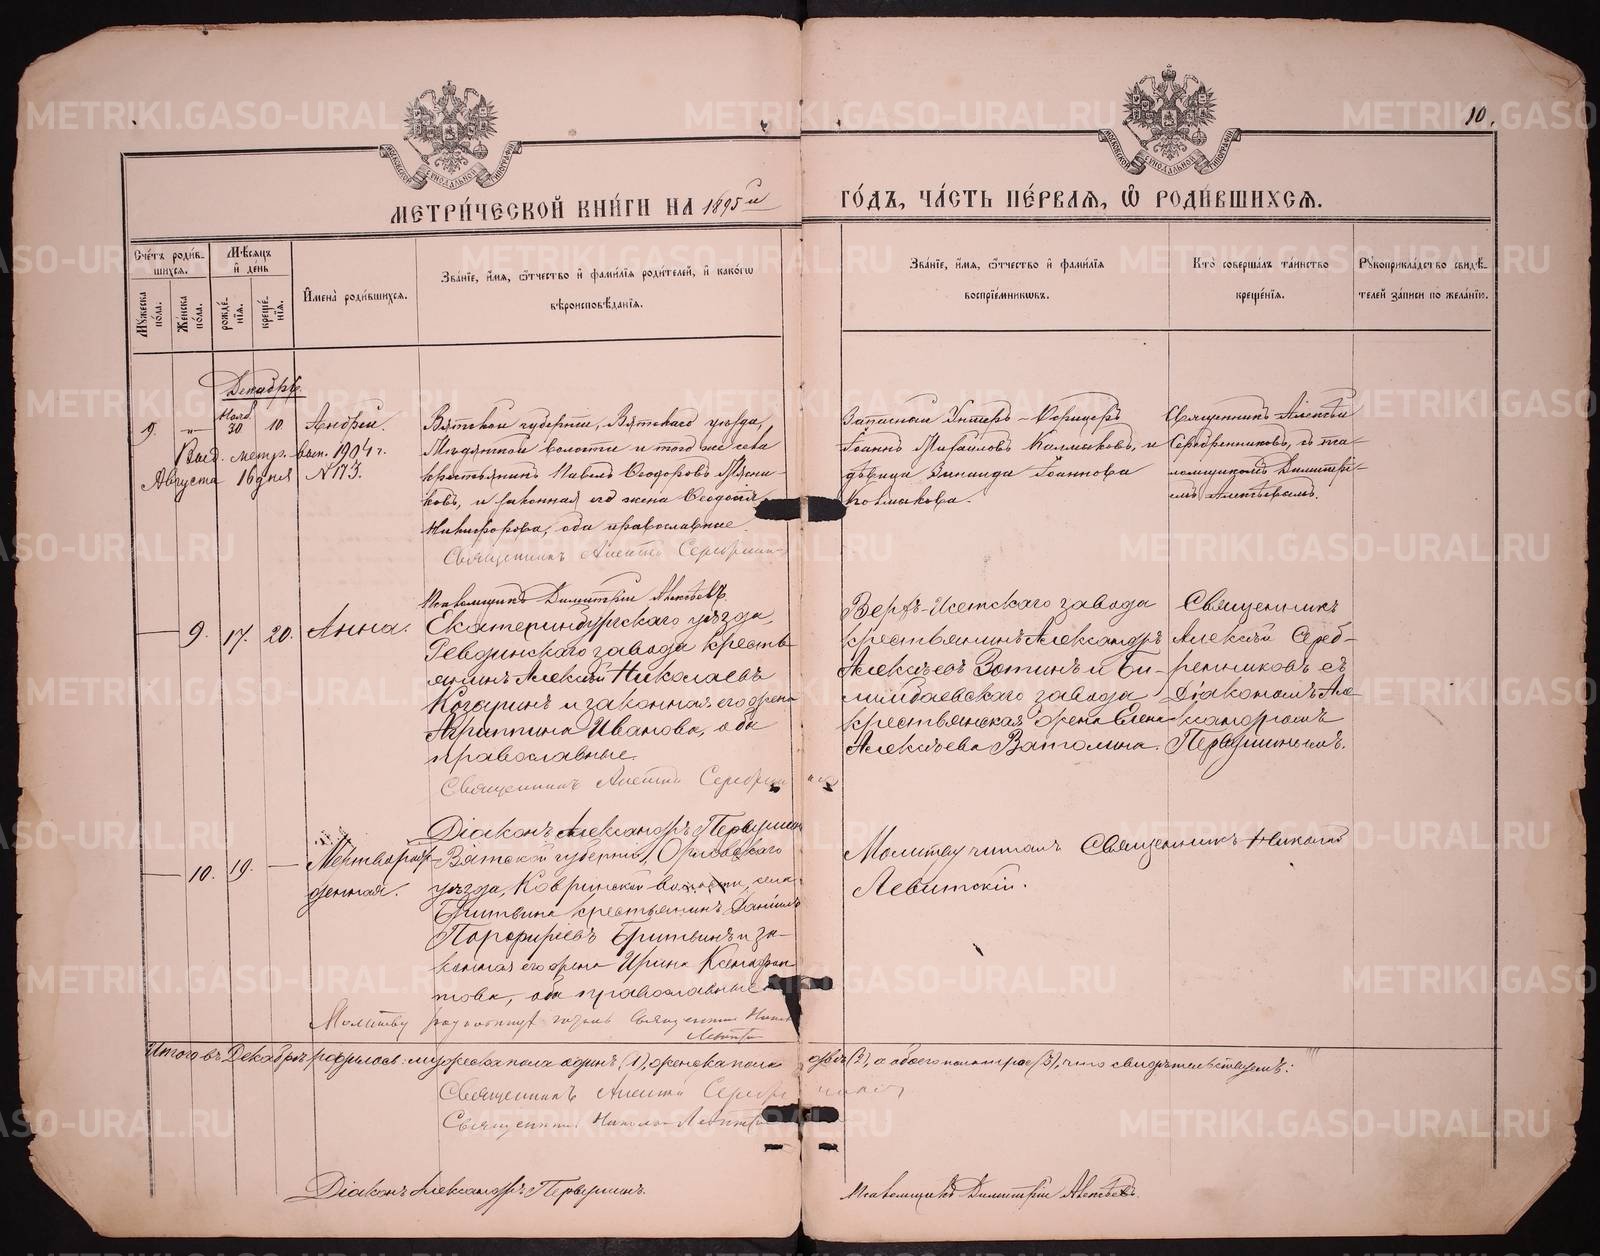 METRIKI.GASO-URAL.RU
10.
МОСКОВСКОЙ СѴНОДАЛЬНОЙ ТИПОГРАФІИ
МЕТРИ́ЧЕСКОЙ КНИ́ГИ НА 1895й ГО́ДЪ, ЧА́СТЬ ПЕ́РВАЯ, Ѽ РОДИ́ВШИХСЯ.
Сче́тъ роди́в-
шихся.
Мꙋжеска по́ла.
Же́нска по́ла.
Мѣ́сяцъ и҆ де́нь
рожде́-
нїя.
креще́-
нїя.
И҆мена̀ роди́вшихся.
Зва́нїе, и҆́мя, ѻ҆́тчество и҆ фами́лїя роди́телей, и҆ како́гѡ
вѣроисповѣ́данїя.
Зва́нїе, и҆́мя, ѻ҆́тчество и҆ фами́лїя
воспрїе́мникѡвъ.
Кто̀ соверша́лъ та́инство
креще́нїя.
Рꙋкоприкла́дство свидѣ́-
телей за́писи по жела́нїю.
Декабрь.
9. " Нояб. 30 10 Андрей.
Выд. метр. вып. 1904 г.
Августа 16 дня №173.
Вятской губерніи, Вятскаго уѣзда,
волости и того же села
крестьянинъ Павелъ Ѳеодоровъ Мясни-
ковъ, и законная его жена Ѳеодосія
Никифорова, оба православные
Священникъ Алексѣй Серебренни
Псаломщикъ Димитрій Алексѣевъ
Запасный Унтеръ-Офицеръ
Іоаннъ Михайловъ Калмыковъ, и
дѣвица Зинаида Іоаннова
Колмыкова.
Священникъ Алексѣй
Серебренниковъ, съ пса-
ломщикомъ Димитрі-
емъ Алексѣевымъ.
9. 17. 20. Анна.
Екатеринбургскаго уѣзда,
Ревдинскаго завода кресть-
янинъ Алексѣй Николаевъ
Козыринъ и законная его жена
Агриппина Иванова, оба
православные.
Священникъ Алексѣй Серебренниковъ
Діаконъ Александръ Первушинъ
Верхъ-Исетскаго завода
крестьянинъ Александръ
Алексѣевъ Зотинъ и Би-
лимбаевскаго завода
крестьянская жена Елена
Алексѣева Ватолина.
Священникъ
Алексѣй Среб-
ренниковъ съ
Діакономъ Але-
ксандромъ
Первушинымъ.
10. 19. — Мертворож-
денная.
Вятской губерніи, Орловскаго
уѣзда, Ковринской волости, села
Бритвина крестьянинъ Даніилъ
Порфирьевъ Бритвинъ и за-
конная его жена Ирина Ксенофон-
това, оба православные
Молитву родильницѣ читалъ Священникъ Никол
Левитск
Молитву читалъ Священникъ Николай
Левитскій.
Итого въ Декабрѣ родилось: мужеска пола одинъ (1), женска пола двѣ (2), а обоего пола трое (3), что свидѣтельствуемъ:
Священникъ Алексѣй Серебренниковъ
Священникъ Николай Левитск
Діаконъ Александръ Первушинъ.
Псаломщикъ Димитрій Алексѣевъ.